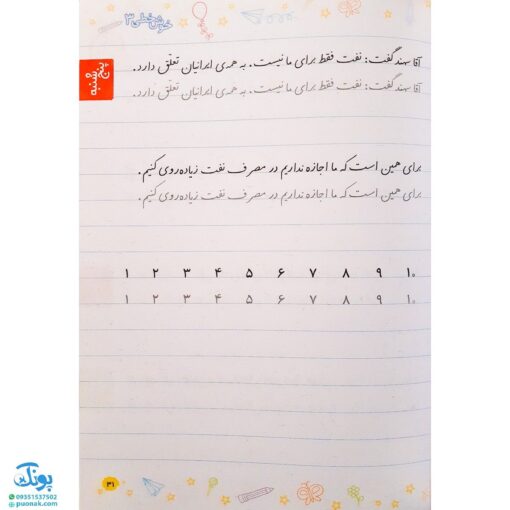 خوش خطی ۳
پنج شنبه
آقا سهند گفت: نفت فقط برای ما نیست. به همه‌ی ایرانیان تعلّق دارد.
آقا سهند گفت: نفت فقط برای ما نیست. به همه‌ی ایرانیان تعلّق دارد.
برای همین است که ما اجازه نداریم در مصرف نفت زیاده‌روی کنیم.
برای همین است که ما اجازه نداریم در مصرف نفت زیاده‌روی کنیم.
۱ ۲ ۳ ۴ ۵ ۶ ۷ ۸ ۹ ۱۰
۱ ۲ ۳ ۴ ۵ ۶ ۷ ۸ ۹ ۱۰
۳۱
پونک
09351537502
puonak.com